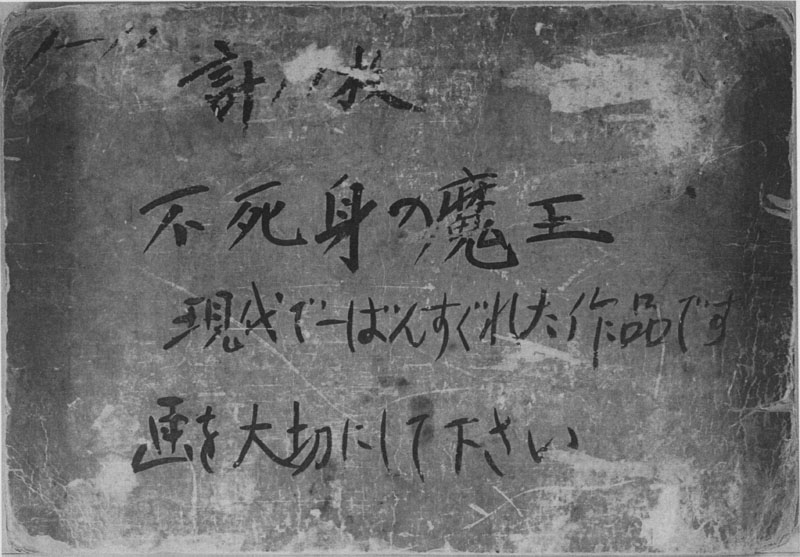 計
不死身の魔王
現代で一ばんすぐれた作品です
画を大切にして下さい